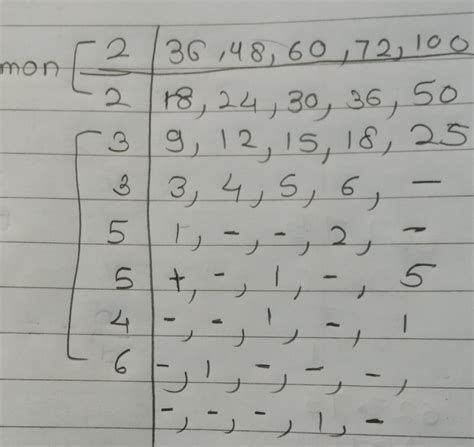 mon 2 | 36, 48, 60, 72, 100
2 | 18, 24, 30, 36, 50
3 | 9, 12, 15, 18, 25
3 | 3, 4, 5, 6, -
5 | 1, -, -, 2, -
5 | +, -, 1, -, 5
4 | -, -, 1, -, 1
6 | -, 1, -, -, -,
-, -, -, 1, -